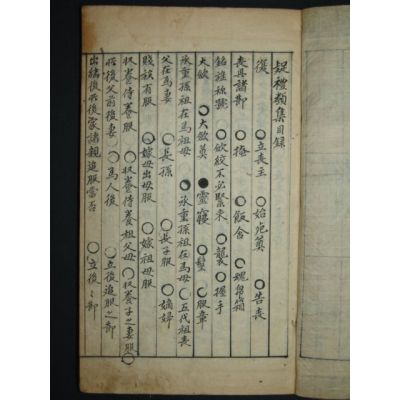 疑禮類集目錄
復 ○立喪主 ○始死奠 ○告喪
喪具諸節 ○掩 ○飯含 ○魂帛箱
銘旌 ○斂絞不必緊束 ○襲 ○握手
大斂 ○大斂奠 ●靈寢 ○髽 ○服章
承重孫祖在爲母 ○承重孫祖在爲母 ○五代祖喪
父在爲妻 ○長孫 ○長子服 ○嫡婦
賤妾有服 ○嫁母出母服 ○嫁祖母服
收養侍養服 ○收養侍養祖父母 ○收養子之妻服 ○
所後父前後妻 ○爲人後 ○立後追服之節
出繼後所後家諸親追服當否 ○立後之節